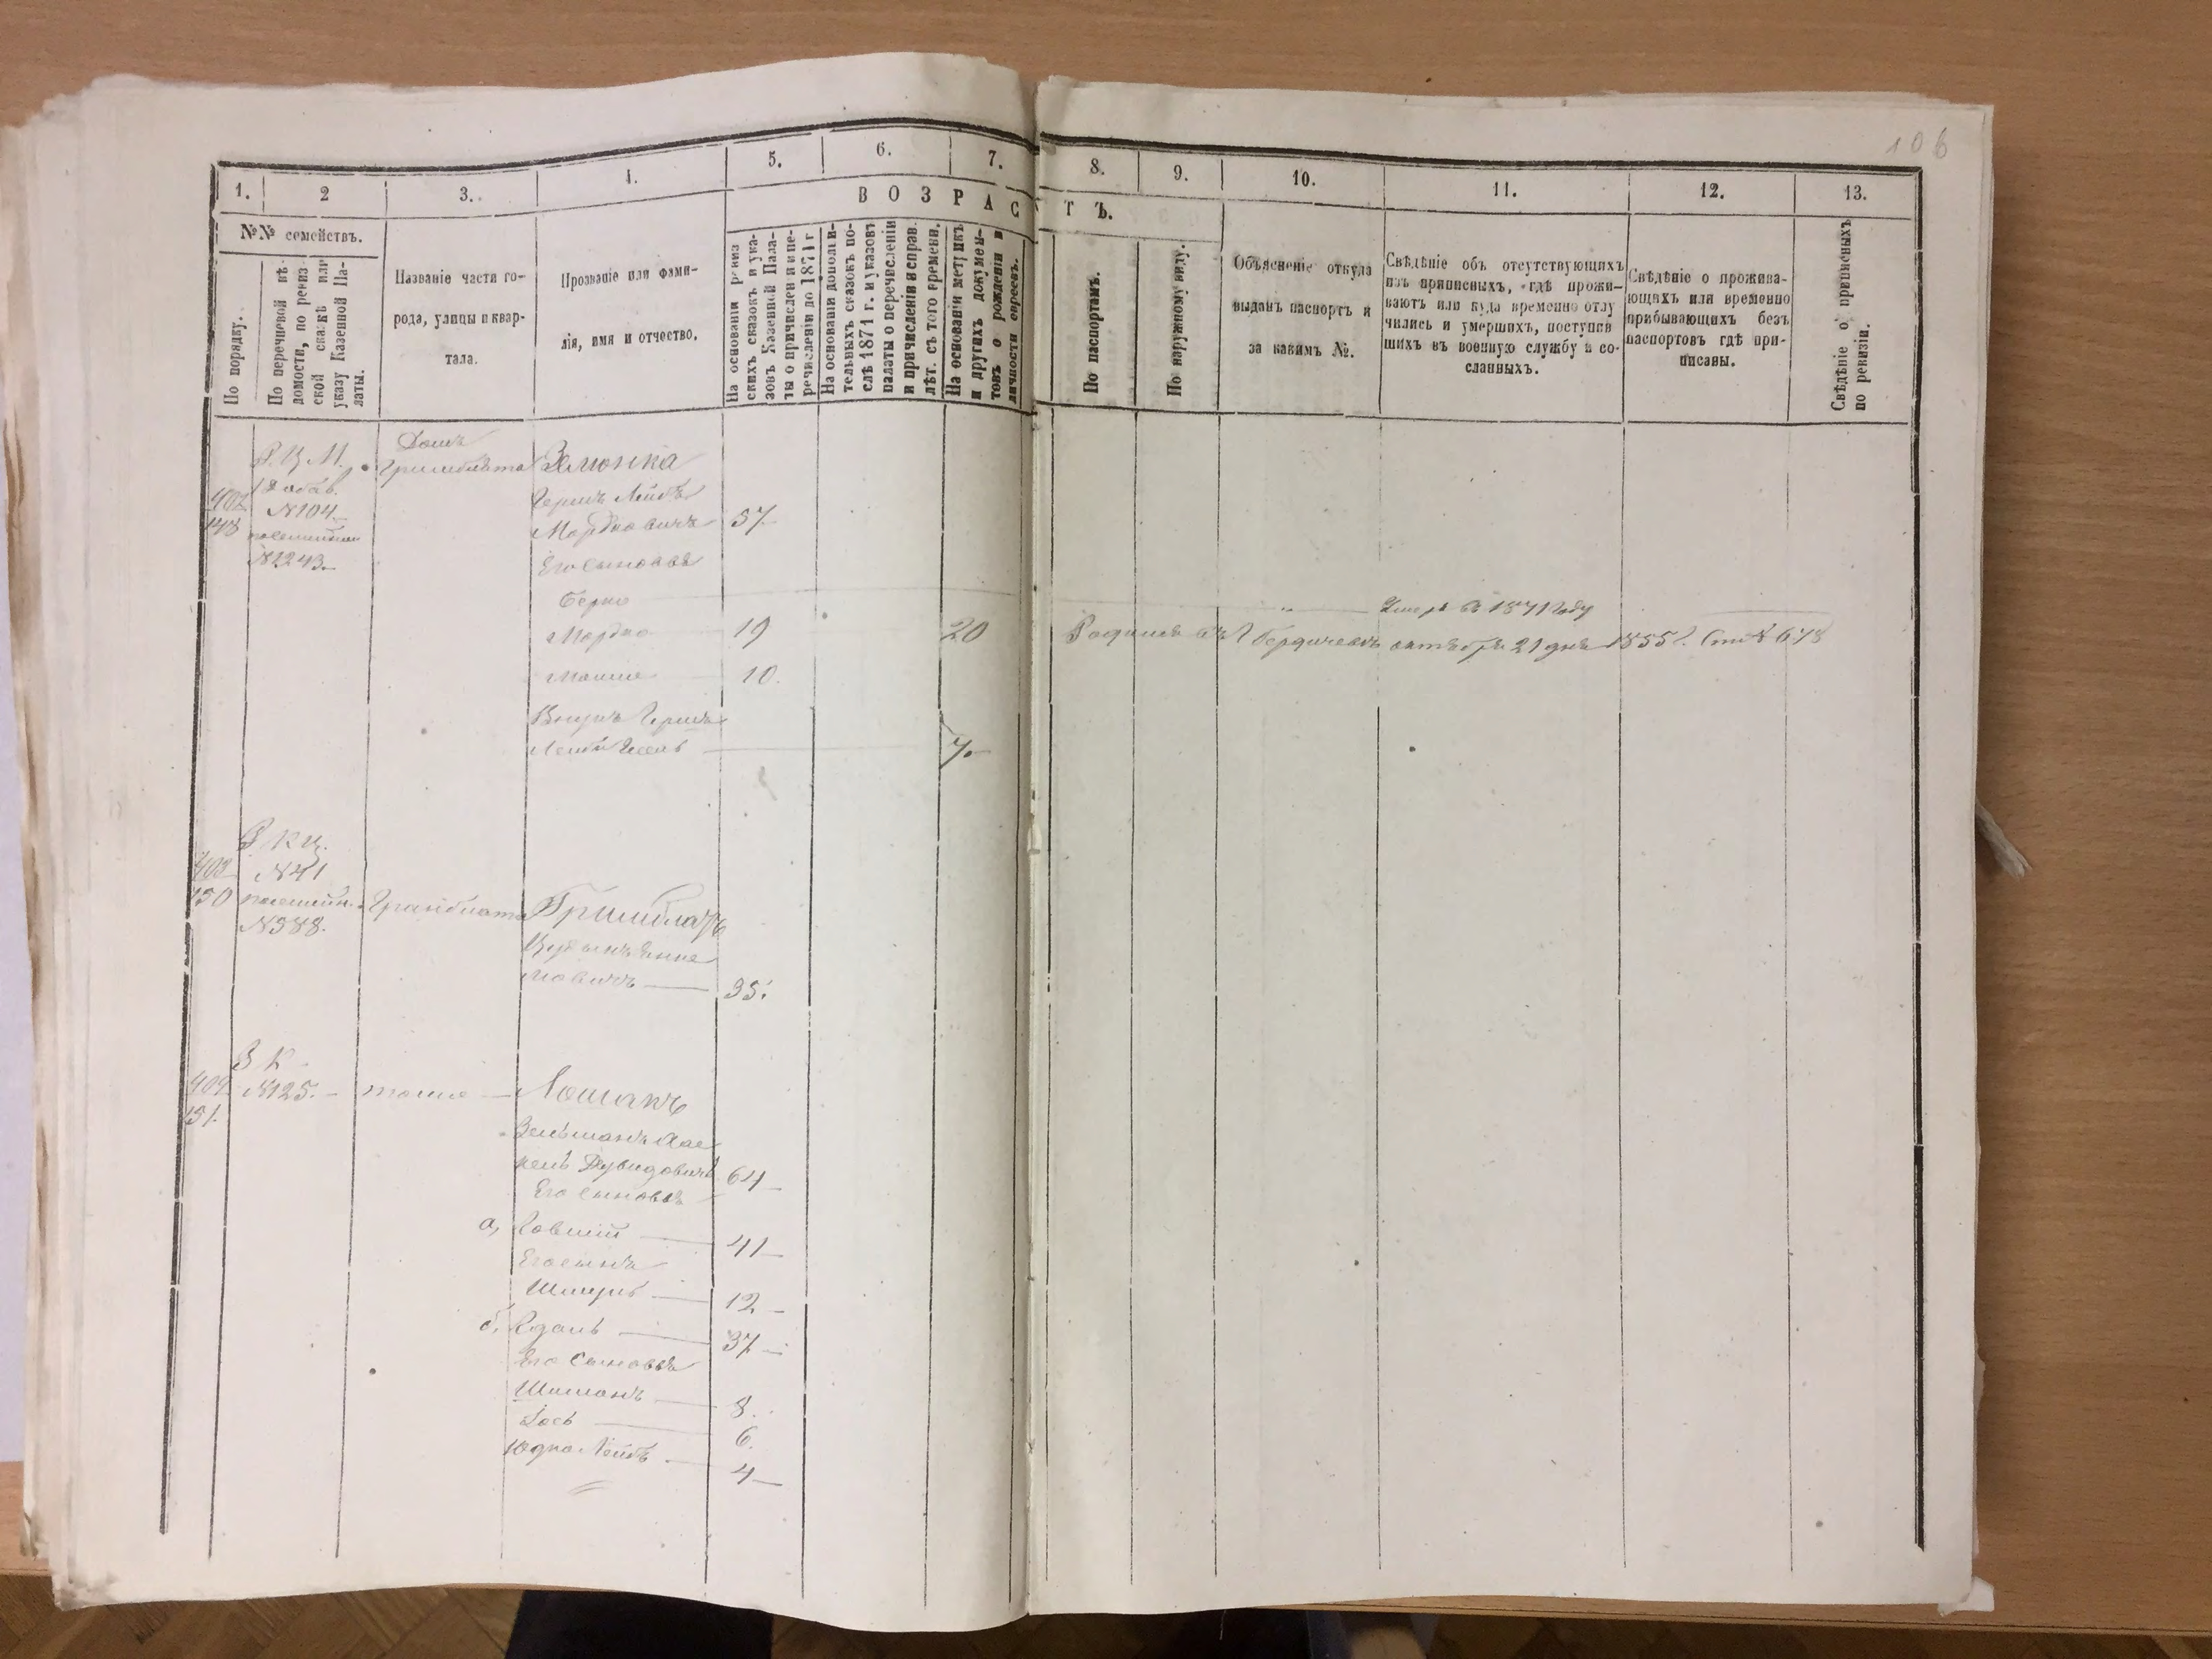 106
1. 2 3. 4. 5. 6. 7. 8. 9. 10. 11. 12. 13.
ВОЗРАСТЪ.
№№ семействъ.
По порядку.
По перечневой вѣ-
домости, по ревиз
ской сказкѣ или
указу Казенной Па-
латы.
Названіе части го-
рода, улицы и квар-
тала.
Прозваніе или фами-
лія, имя и отчество.
На основаніи ревиз
скихъ сказокъ и ука-
зовъ Казенной Пала-
ты о причислен и и пе-
речисленіи до 1871 г
На основаніи дополни-
тельныхъ сказокъ по-
слѣ 1871 г. и указовъ
палаты о перечисленіи
и причисленіи и справ.
лѣт. съ того времени.
На основаніи метрикъ
и другихъ докумен-
товъ о рожденіи и
личности евреевъ.
По паспортамъ.
По наружному виду.
Объясненіе откуда
выданъ паспортъ и
за какимъ №.
Свѣдѣніе объ отсутствующихъ
изъ приписныхъ, гдѣ прожи-
ваютъ или куда временно отлу
чились и умершихъ, поступив
шихъ въ военную службу и со-
сланныхъ.
Свѣдѣніе о прожива-
ющихъ или временно
прибывающихъ безъ
паспортовъ гдѣ при-
писаны.
Свѣдѣніе о приписныхъ
по ревизіи.
Домъ
Р. Ц. М. Зелюнка
402 № 104 Гершъ Лейбъ
148 Мордковичъ 57
№ 1243 Его сыновья
Берко Умеръ въ 1871 году
Мордко 19 20 Родился въ Г Бердичевѣ октября 21 дня 1855 г. 678
Мошко 10.
Внукъ Гершъ
7.
403 № 41
150 Гринблата Гринблатъ
№ 388.
мовичъ 35.
З К
404 № 125. тоже Лошакъ
151.
Дувидовичъ 64
Его сыновья
а, Товшій 41
Его сынъ
Шмуль 12
б, 37
Его сыновья
Шимонъ 8.
Іось 6.
Юдко Лейбъ 4